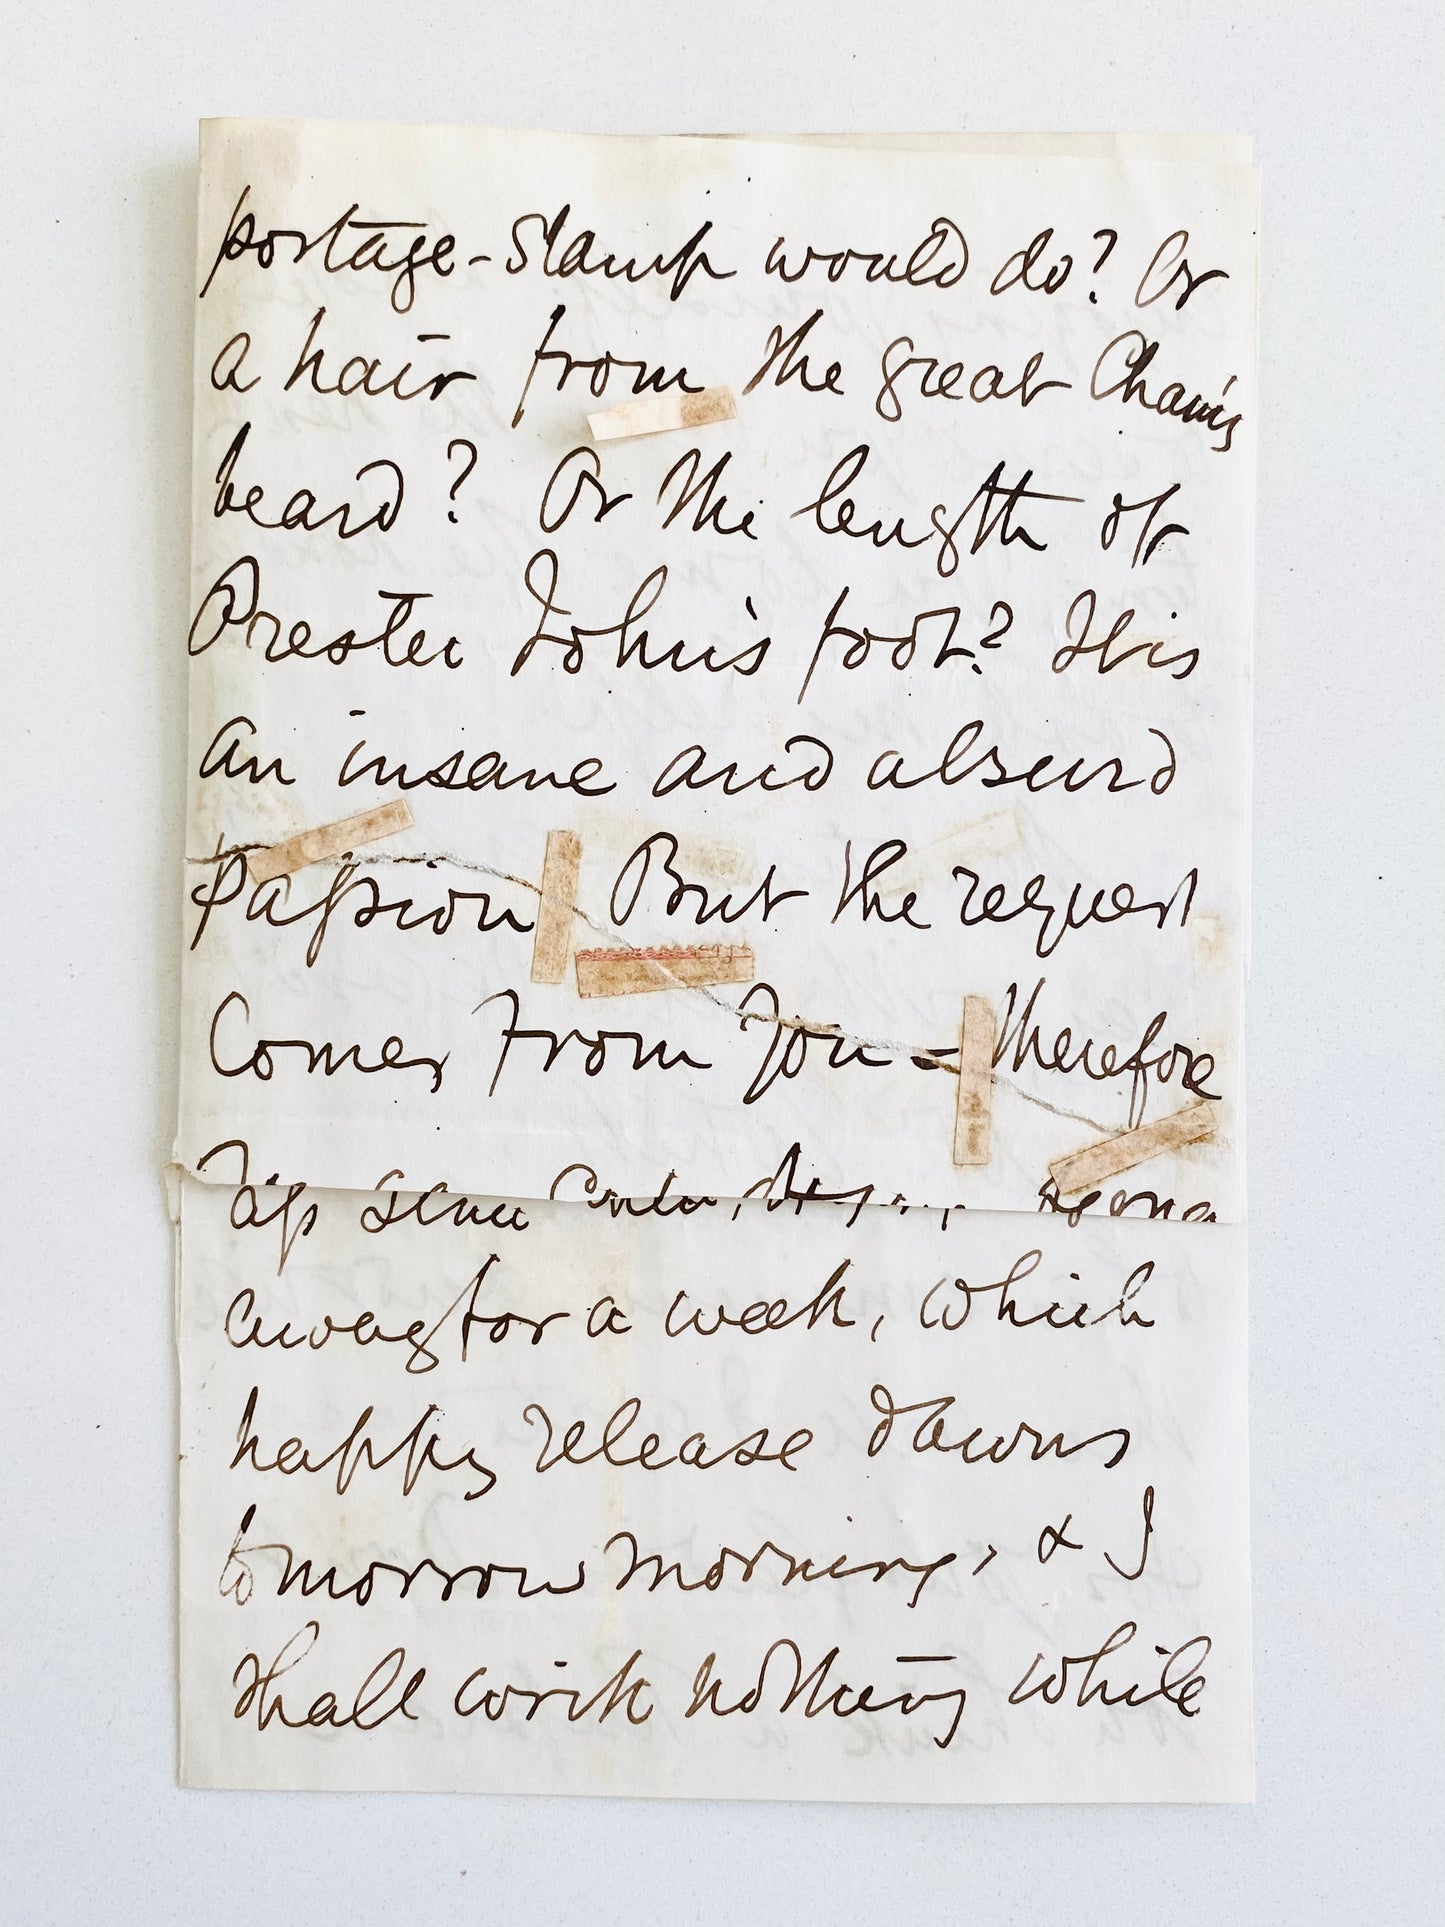 postage-stamp would do? Or
a hair from the great Cham's
beard? Or the length of
Prester John's foot? It is
an insane and absurd
Passion. But the request
Comes from You = therefore
away for a week, which
happy release dawns
tomorrow morning, & I
shall write nothing while